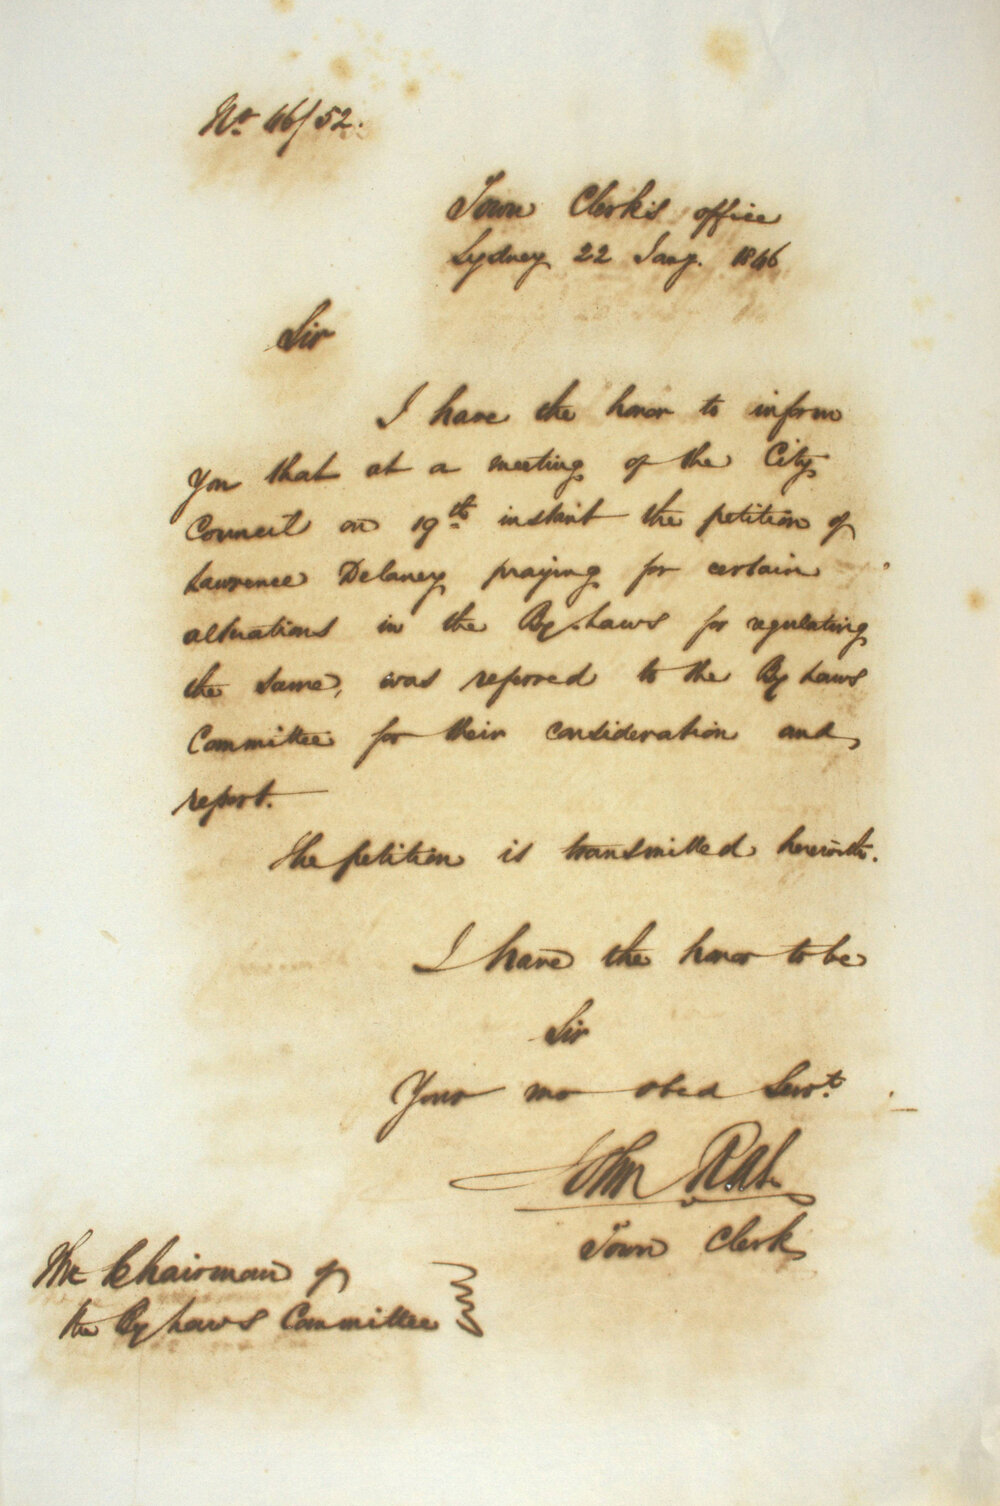 No. 46/52.
Town Clerk's office
Sydney 22 Jany. 1846
Sir
I have the honor to inform
you that at a meeting of the City
Council on 19th instant the petition of
Lawrence Delaney praying for certain
alterations in the By Laws for regulating
the same, was referred to the By Laws
Committee for their consideration and
report.
The petition is transmitted herewith.
I have the honor to be
Sir
Your mo obed Servt.
John Rae
Town Clerk
The Chairman of
the By Laws Committee